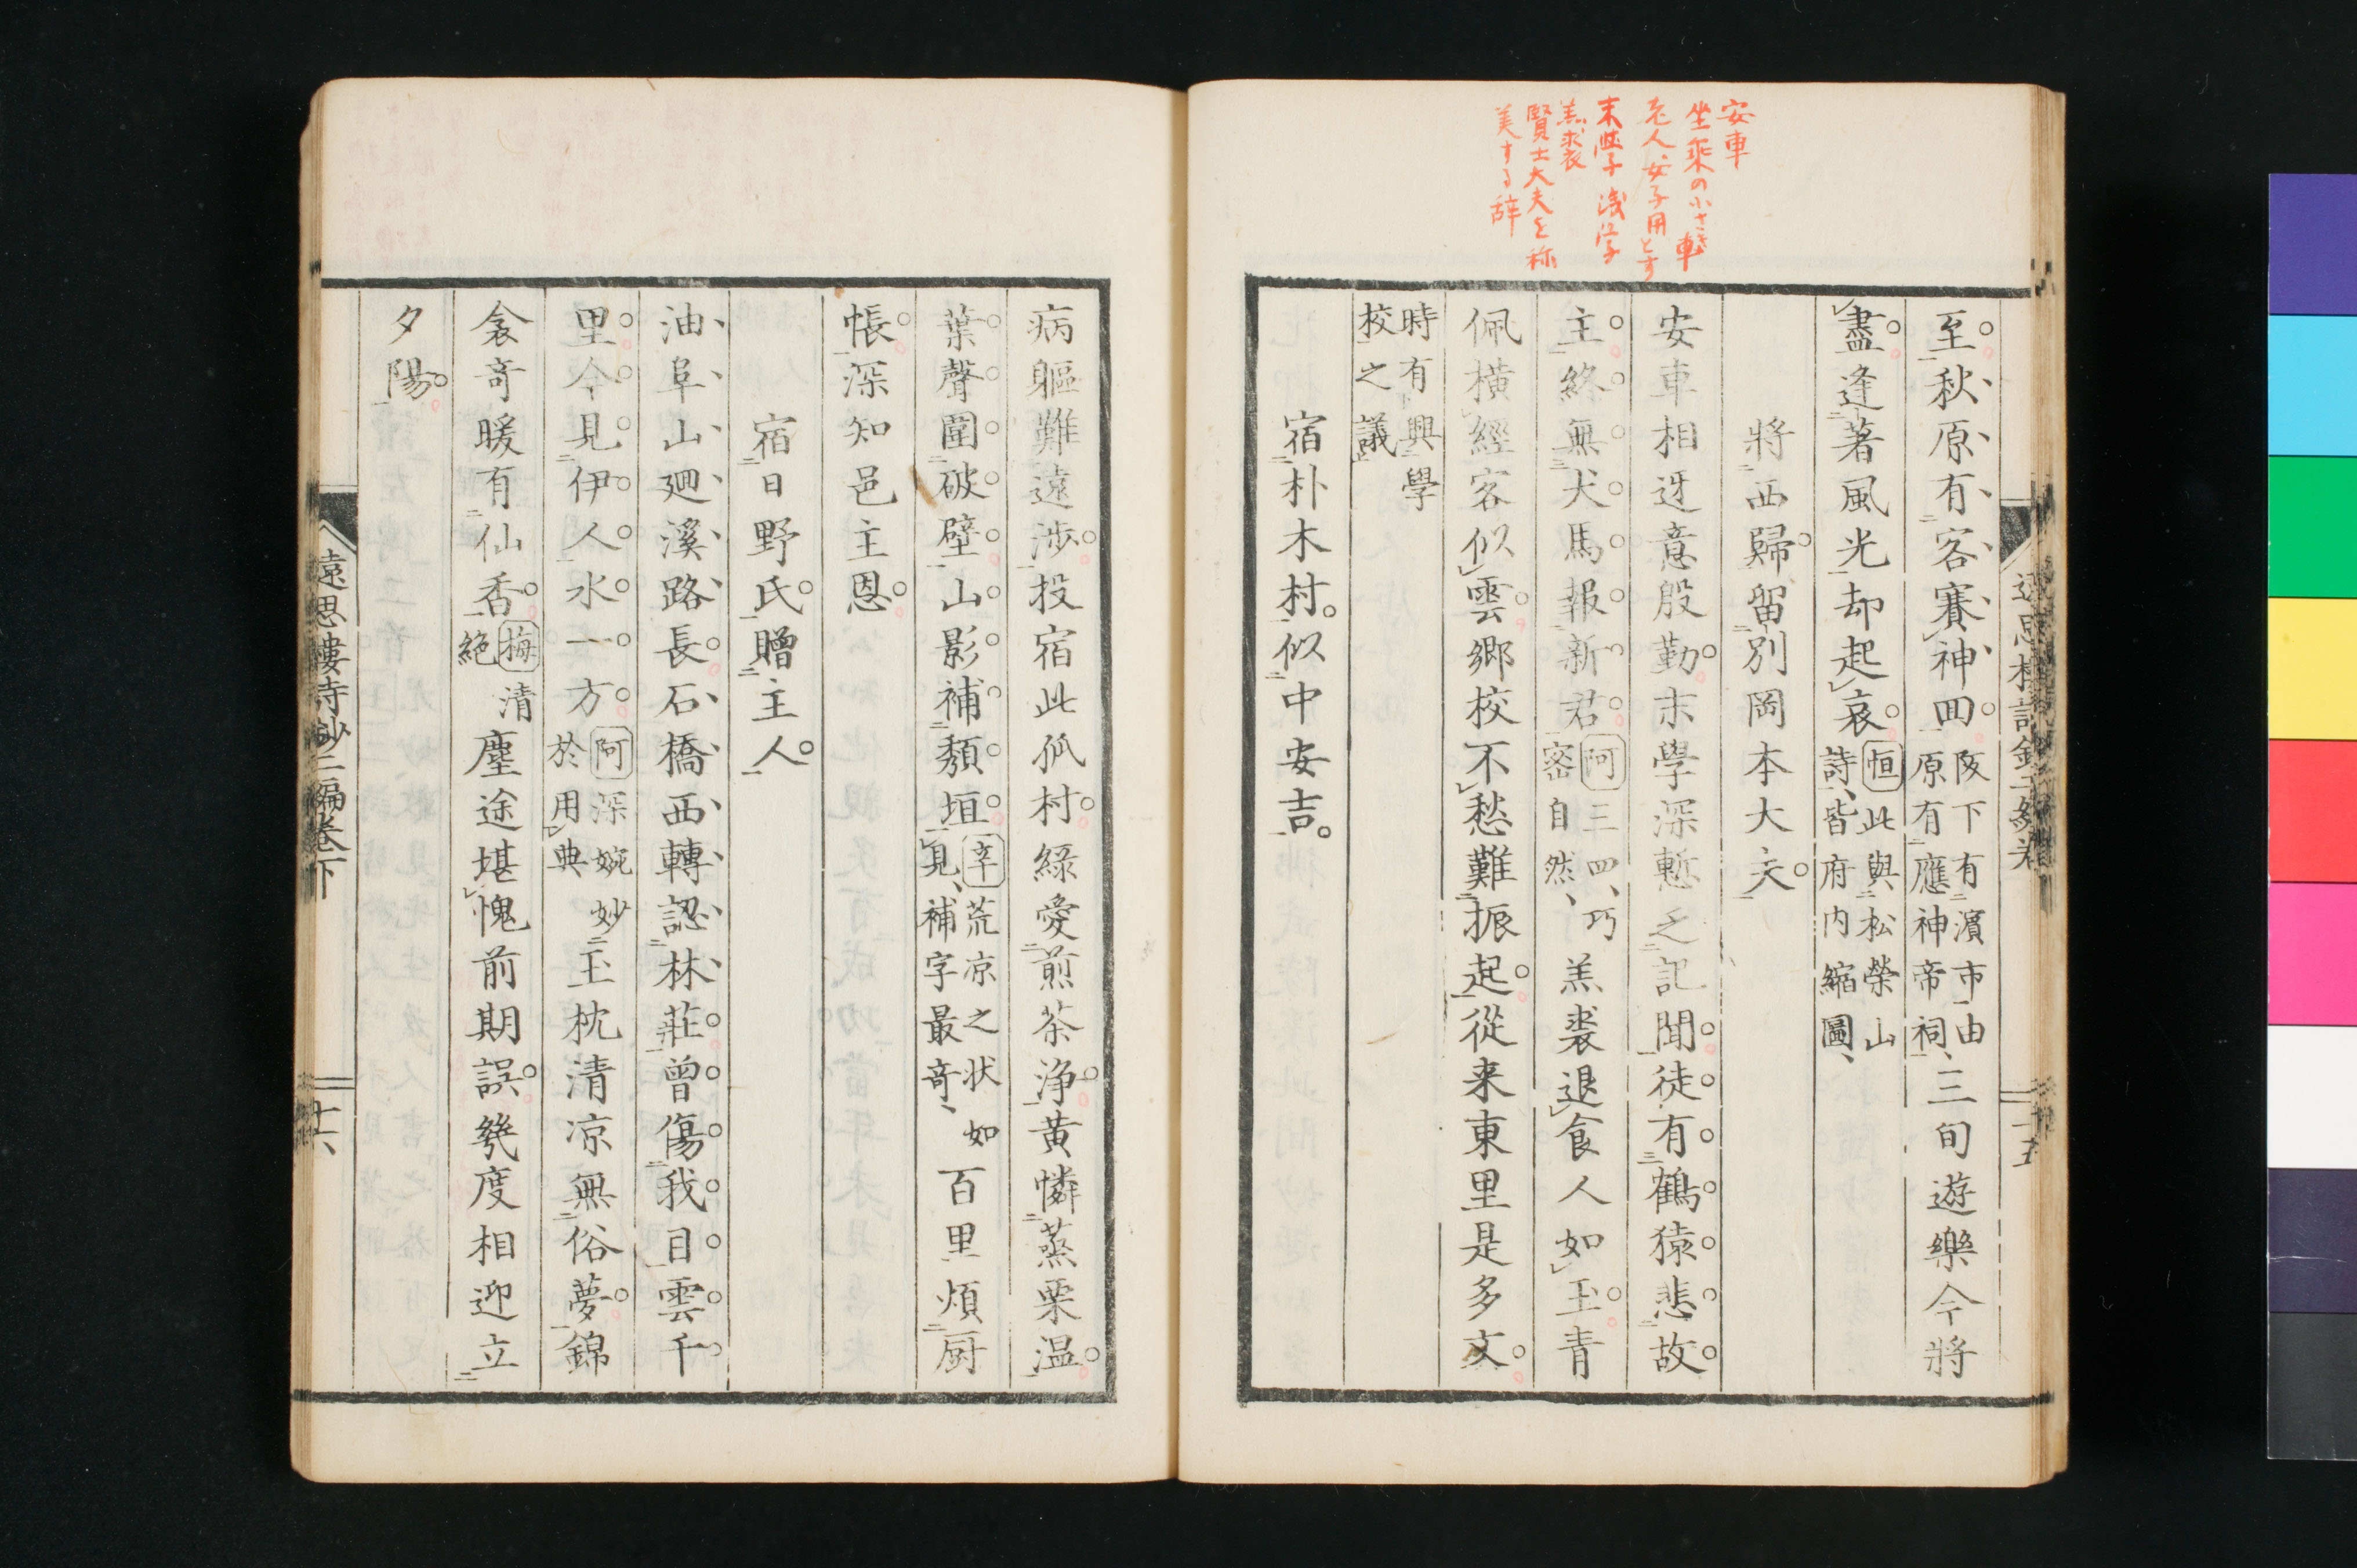 安車
坐乘の小さき車
老人、女子用とす
末學 淺學
羔裘
賢士大夫を称
美する辞
至秋原有客賽神回阪下有濱市由原有應神帝祠、三旬遊樂今將
盡逢著風光却起哀恒此與松榮山詩、皆府内縮圖、
將西歸留別岡本大夫
安車相迓意殷勤末學深慙乏記聞徒有鶴猿悲故
主終無犬馬報新君阿三四、巧密自然、羔裘退食人如玉青
佩橫經客似雲鄉校不愁難振起從来東里是多文
時有興學校之議
宿朴木村似中安吉
病軀難遠涉投宿此孤村綠愛煎茶净黃憐蒸栗温
葉聲圍破壁山影補頽垣辛荒凉之状如見、補字最奇、百里煩厨
帳深知邑主恩
宿日野氏贈主人
油阜山廻溪路長石橋西轉認林莊曾傷我目雲千
里今見伊人水一方阿深婉妙於用典玉枕清凉無俗夢錦
衾奇暖有仙香梅清絶塵途堪愧前期誤幾度相迎立
夕陽
遠思樓詩鈔二編卷下
十六